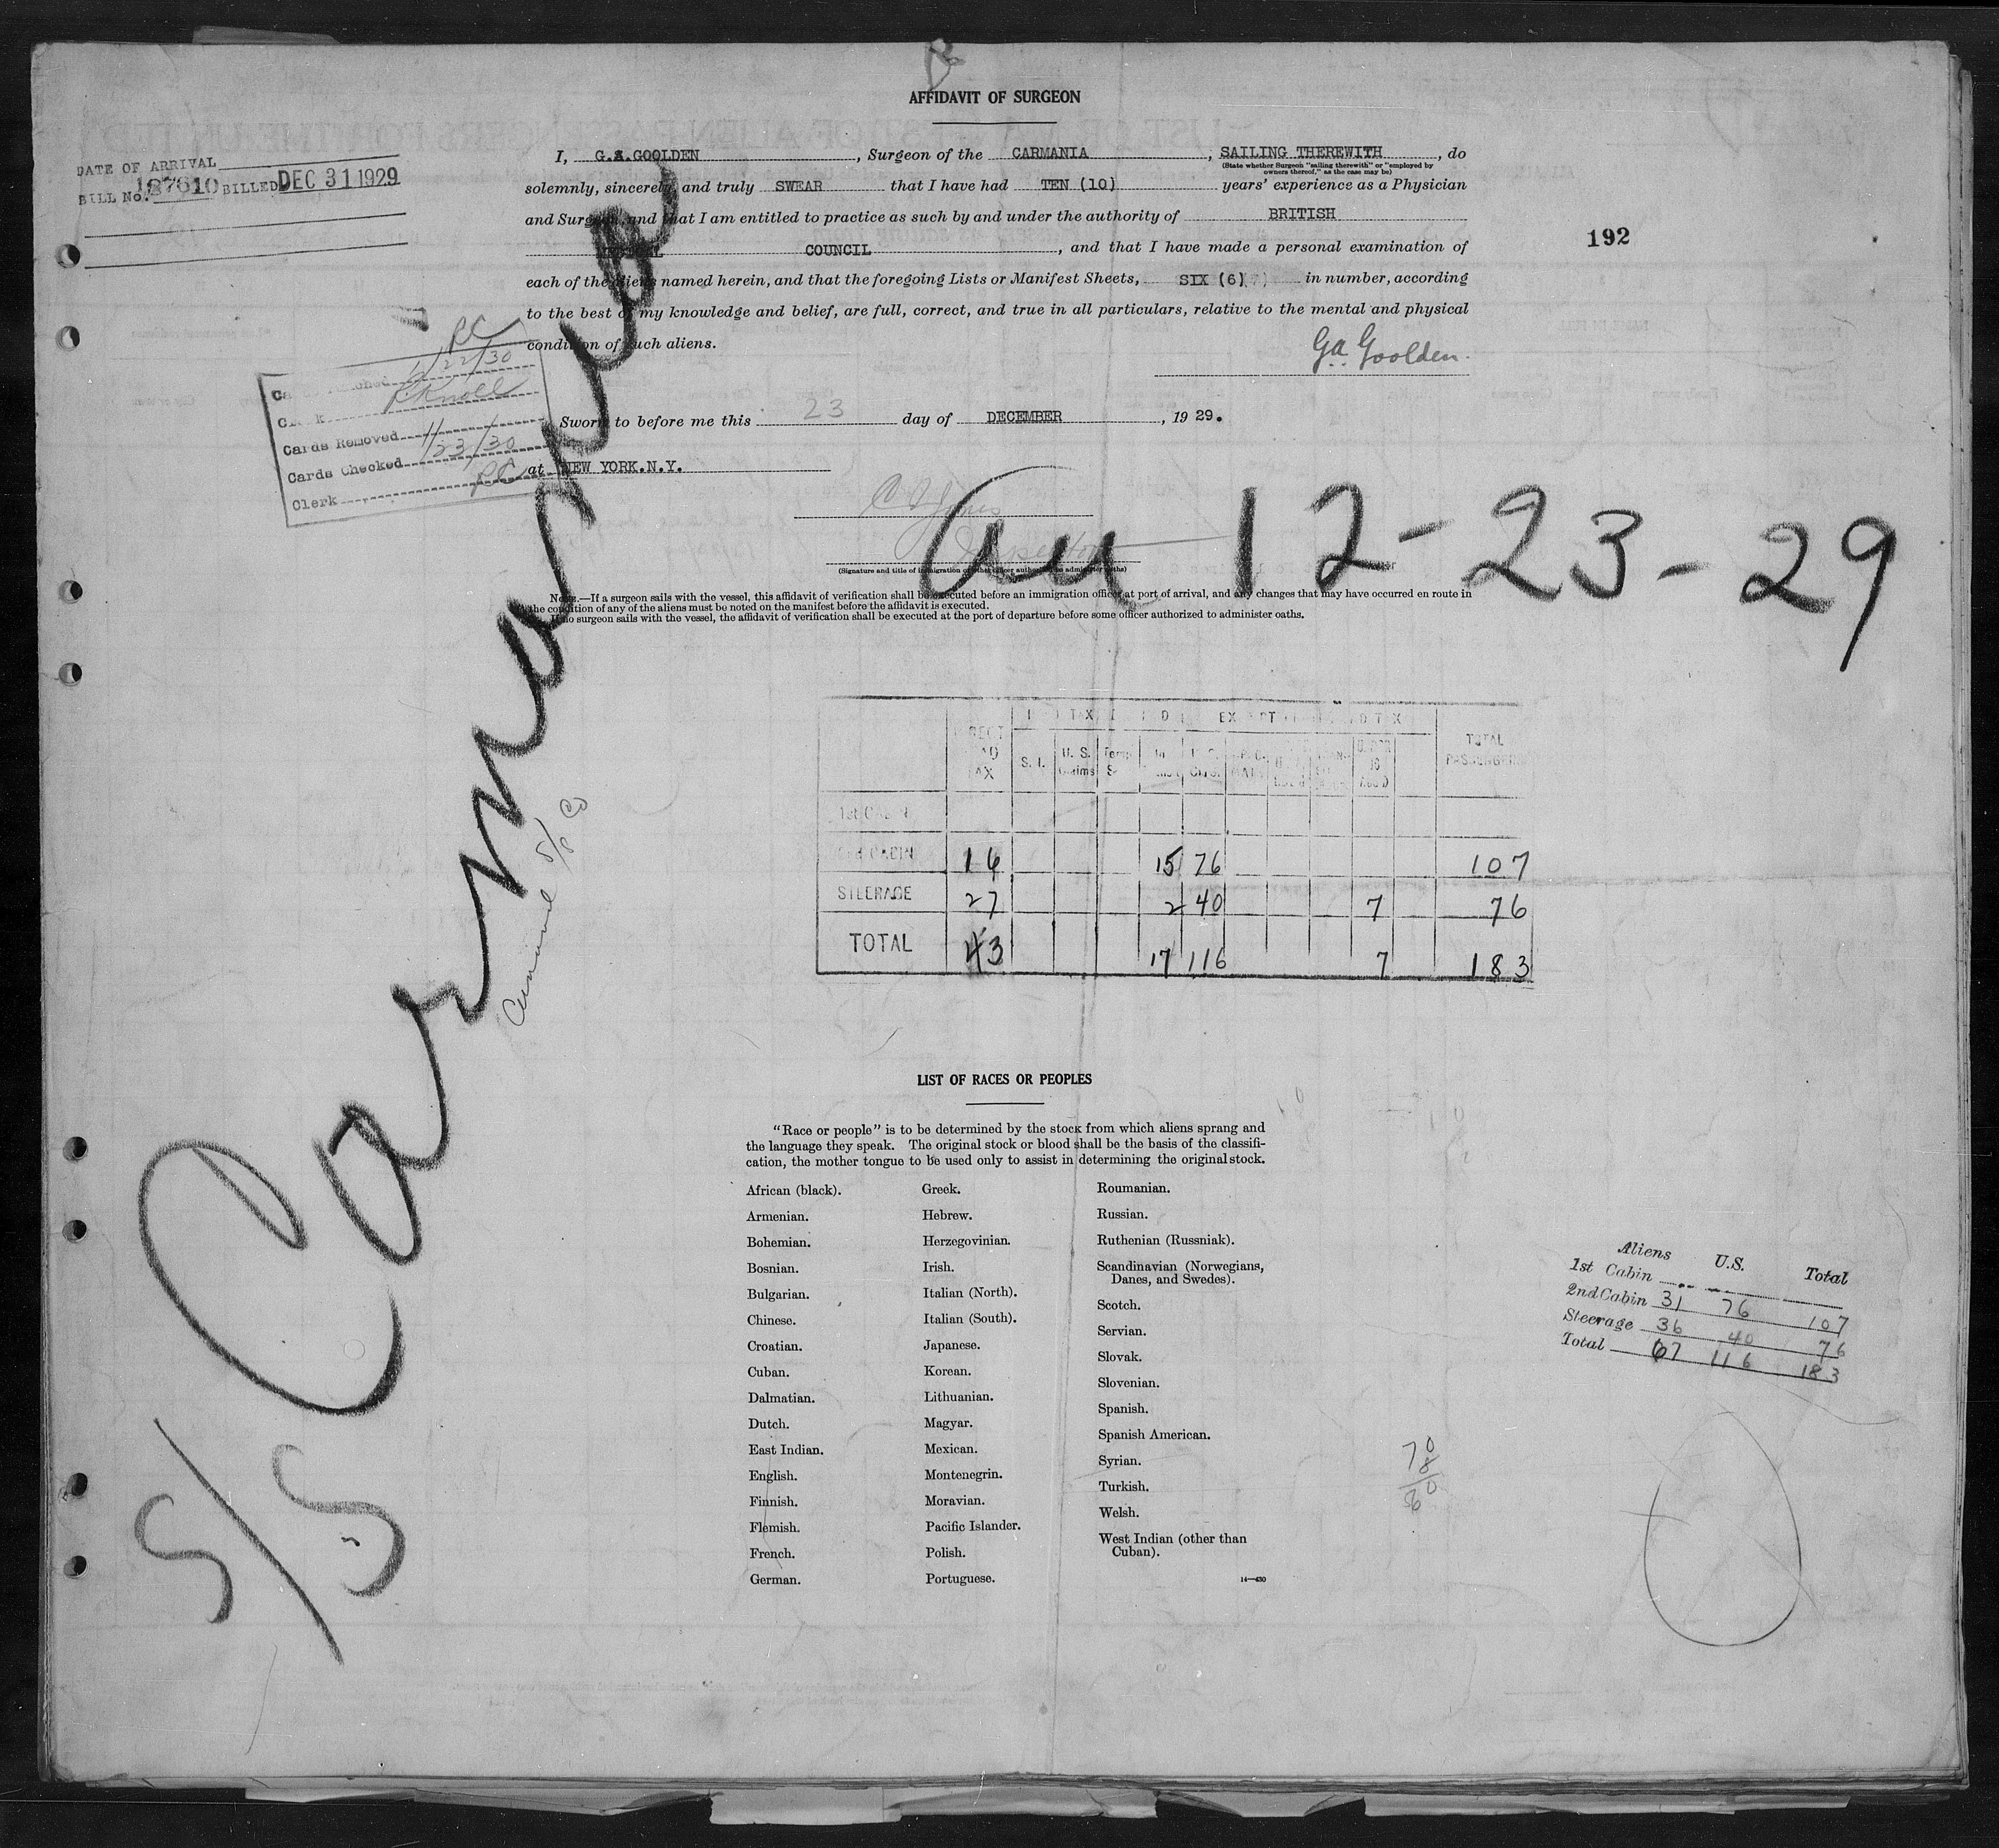 AFFIDAVIT OF SURGEON
DATE OF ARRIVAL
BILL No. 187610 BILLED DEC 31 1929
I, G.A.GOOLDEN, Surgeon of the CARMANIA, SAILING THEREWITH, do
(State whether Surgeon "sailing therewith" or "employed by
owners thereof," as the case may be)
solemnly, sincerely and truly SWEAR that I have had TEN (10) years' experience as a Physician
and Surgeon, and that I am entitled to practice as such by and under the authority of BRITISH
MEDICAL COUNCIL, and that I have made a personal examination of
each of the aliens named herein, and that the foregoing Lists or Manifest Sheets, SIX (6) in number, according
to the best of my knowledge and belief, are full, correct, and true in all particulars, relative to the mental and physical
condition of such aliens.
192
G.A. Goolden.
RC
1/22/30
Clerk
Cards Removed
Cards Checked 1/23/30
Clerk RC
Sworn to before me this 23 day of DECEMBER, 19 29.
at NEW YORK.N.Y.
Inspector
(Signature and title of immigration or other officer authorized to administer oaths)
Arr 12-23-29
NOTE.—If a surgeon sails with the vessel, this affidavit of verification shall be executed before an immigration officer at port of arrival, and any changes that may have occurred en route in
the condition of any of the aliens must be noted on the manifest before the affidavit is executed.
If no surgeon sails with the vessel, the affidavit of verification shall be executed at the port of departure before some officer authorized to administer oaths.
S/S Carmania
TAX S. I. U. S. Claims TOTAL PASSENGERS
1st CABIN
2nd CABIN 16 15 76 107
STEERAGE 27 2 40 7 76
TOTAL 43 17 116 7 183
LIST OF RACES OR PEOPLES
"Race or people" is to be determined by the stock from which aliens sprang and
the language they speak. The original stock or blood shall be the basis of the classifi-
cation, the mother tongue to be used only to assist in determining the original stock.
African (black).
Armenian.
Bohemian.
Bosnian.
Bulgarian.
Chinese.
Croatian.
Cuban.
Dalmatian.
Dutch.
East Indian.
English.
Finnish.
Flemish.
French.
German.
Greek.
Hebrew.
Herzegovinian.
Irish.
Italian (North).
Italian (South).
Japanese.
Korean.
Lithuanian.
Magyar.
Mexican.
Montenegrin.
Moravian.
Pacific Islander.
Polish.
Portuguese.
Roumanian.
Russian.
Ruthenian (Russniak).
Scandinavian (Norwegians,
Danes, and Swedes).
Scotch.
Servian.
Slovak.
Slovenian.
Spanish.
Spanish American.
Syrian.
Turkish.
Welsh.
West Indian (other than
Cuban).
14—430
Aliens U.S. Total
1st Cabin
2nd Cabin 31 76 107
Steerage 36 40 76
Total 67 116 183